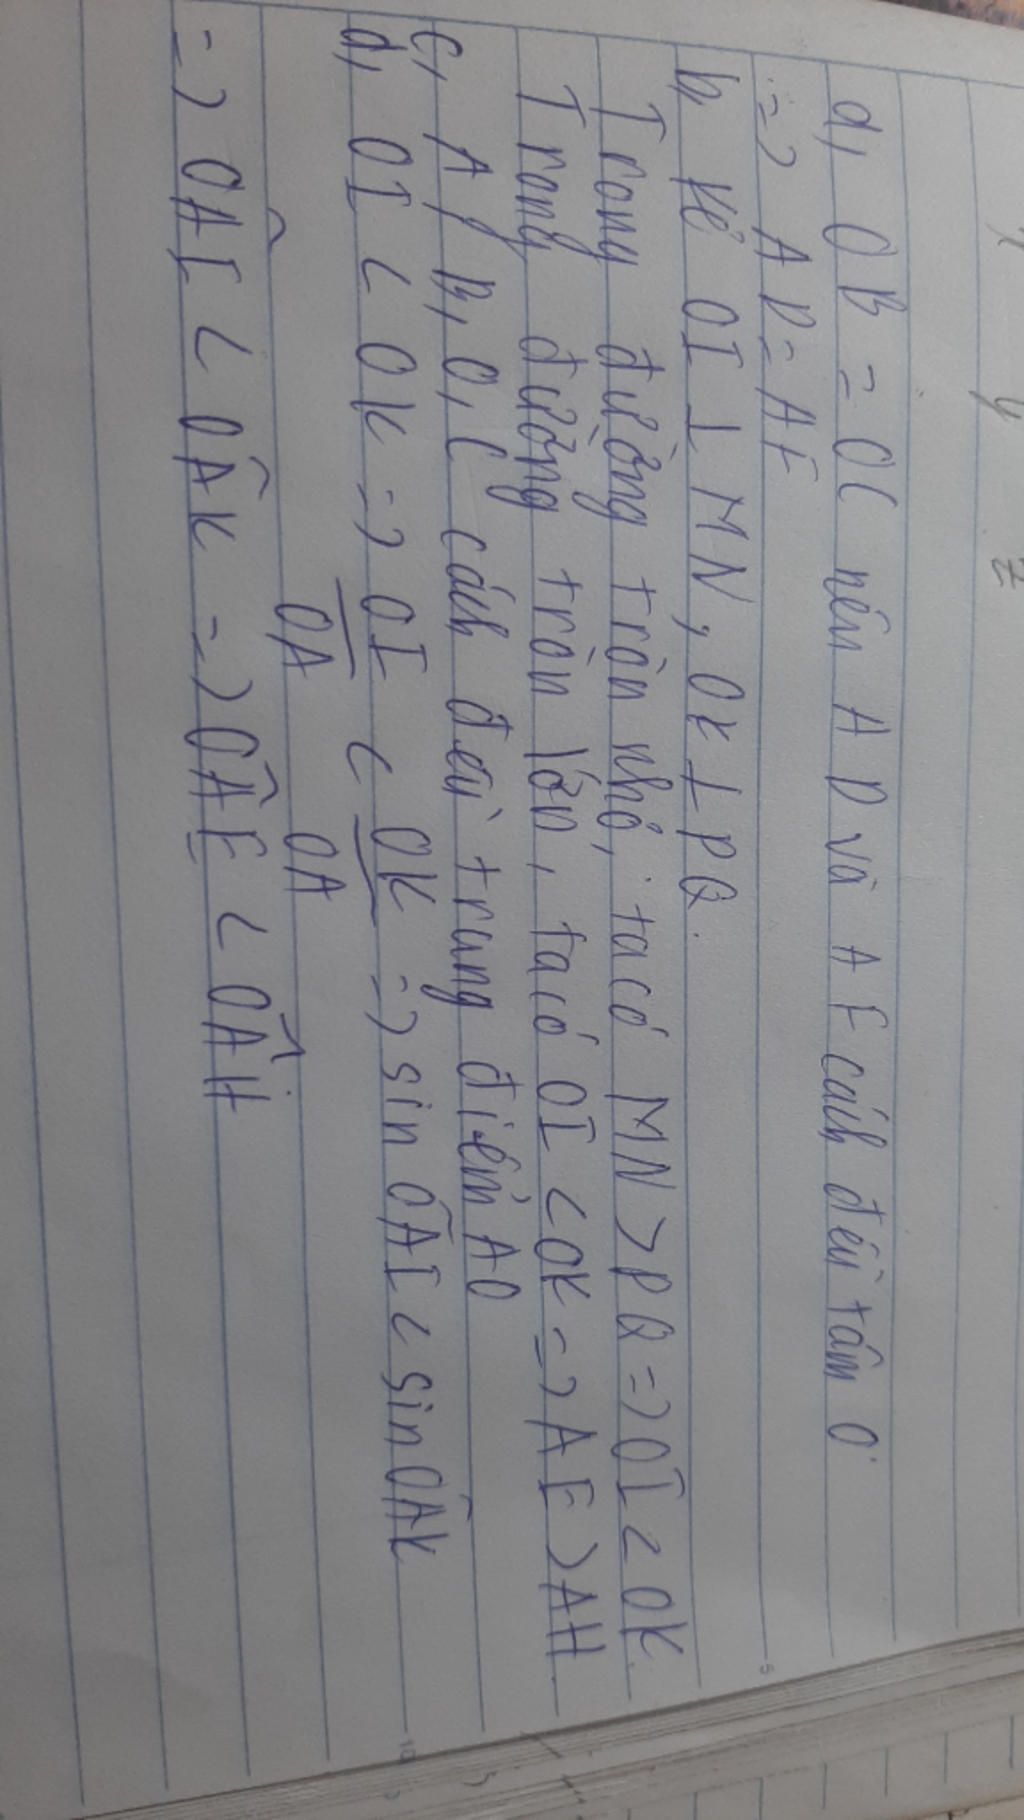 x y z
a, OB = OC nên AD và AE cách đều tâm O
=> AD = AE
b, Kẻ OI ⊥ MN, OK ⊥ PQ.
Trong đường tròn nhỏ, ta có MN > PQ => OI < OK.
Trong đường tròn lớn, ta có OI < OK => AE > AH
c, A, B, O, C cách đều trung điểm AO
d, OI < OK => OI/OA < OK/OA => sin OÂI < sin OÂK
=> OÂI < OÂK => OÂE < OÂH